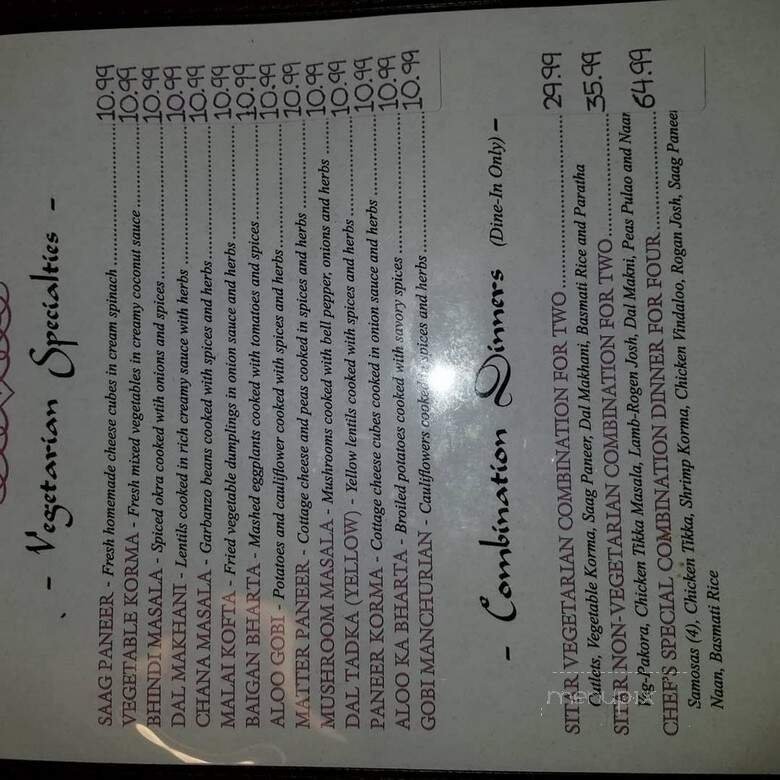 - Vegetarian Specialties -
SAAG PANEER - Fresh homemade cheese cubes in cream spinach 10.99
VEGETABLE KORMA - Fresh mixed vegetables in creamy coconut sauce 10.99
BHINDI MASALA - Spiced okra cooked wtih onions and spices 10.99
DAL MAKHANI - Lentils cooked in rich creamy sauce with herbs 10.99
CHANA MASALA - Garbanzo beans cooked with spices and herbs 10.99
MALAI KOFTA - Fried vegetable dumplings in onion sauce and herbs 10.99
BAIGAN BHARTA - Mashed eggplants cooked with tomatoes and spices 10.99
ALOO GOBI - Potatoes and cauliflower cooked with spices and herbs 10.99
MATTER PANEER - Cottage cheese and peas cooked in spices and herbs 10.99
MUSHROOM MASALA - Mushrooms cooked with bell pepper, onions and herbs 10.99
DAL TADKA (YELLOW) - Yellow lentils cooked with spices and herbs 10.99
PANEER KORMA - Cottage cheese cubes cooked in onion sauce and herbs 10.99
ALOO KA BHARTA - Broiled potatoes cooked with savory spices 10.99
GOBI MANCHURIAN - Cauliflowers cooked spices and herbs 10.99
- Combination Dinners (Dine-In Only) -
SITAR VEGETARIAN COMBINATION FOR TWO 29.99
Cutlets, Vegetable Korma, Saag Paneer, Dal Makhani, Basmati Rice and Paratha
SITAR NON-VEGETARIAN COMBINATION FOR TWO 35.99
Veg-Pakora, Chicken Tikka Masala, Lamb-Rogen Josh, Dal Makni, Peas Pulao and Naan
CHEF'S SPECIAL COMBINATION DINNER FOR FOUR 64.99
Samosas (4), Chicken Tikka, Shrimp Korma, Chicken Vindaloo, Rogan Josh, Saag Paneer
Naan, Basmati Rice
menupix